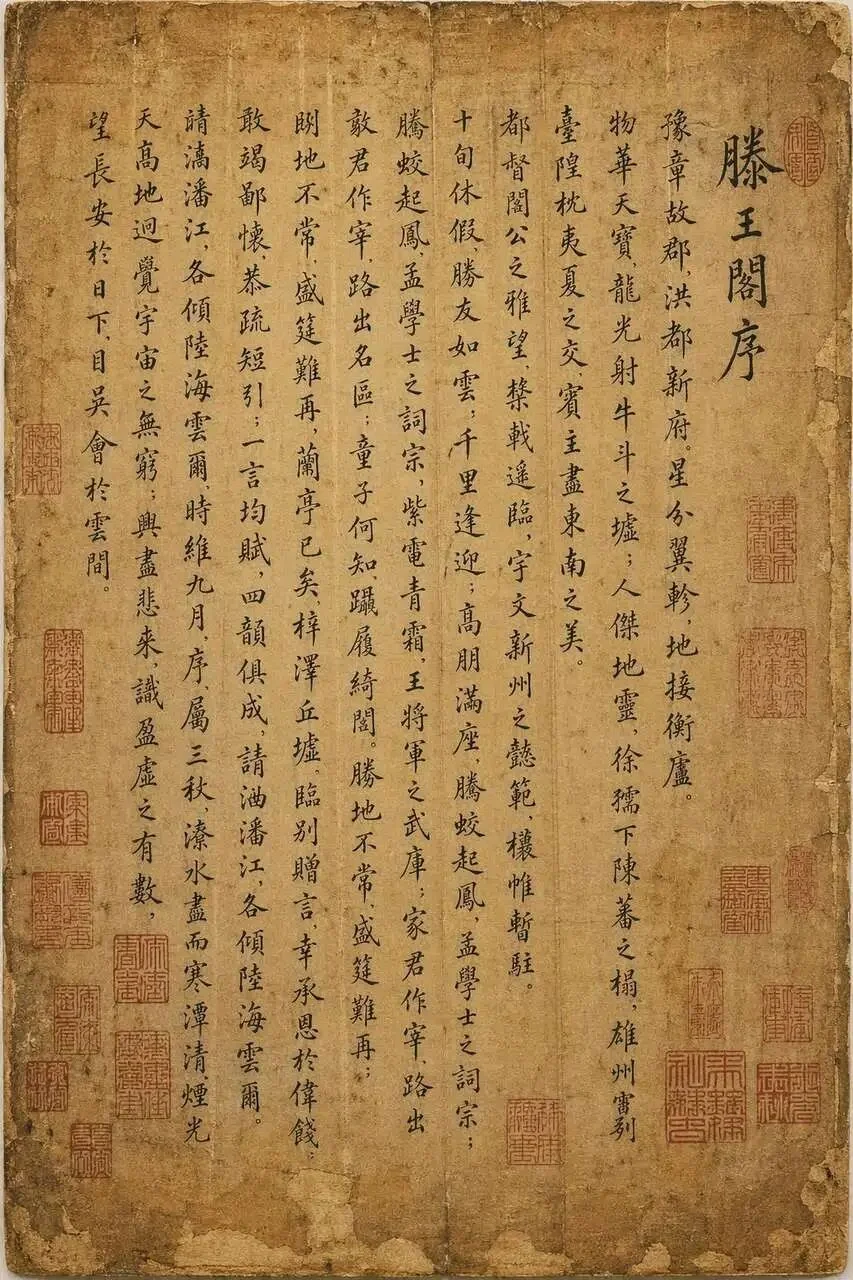 滕王閣序
豫章故郡，洪都新府。星分翼軫，地接衡廬。
物華天寶，龍光射牛斗之墟；人傑地靈，徐孺下陳蕃之榻，雄州霤列
臺隍枕夷夏之交，賓主盡東南之美。
都督閣公之雅望，棨戟遥臨，宇文新州之懿範，欀帷暫駐。
十旬休假，勝友如雲；千里逢迎；高朋滿座，騰蛟起鳳，孟學士之詞宗；
騰蛟起鳳，孟學士之詞宗，紫電青霜，王將軍之武庫；家君作宰，路出
敢君作宰，路出名區；童子何知，躡履綺閣。勝地不常，盛筵難再；
地不常，盛筵難再，蘭亭已矣，梓澤丘墟。臨別贈言，幸承恩於偉餞；
敢竭鄙懷，恭疏短引；一言均賦，四韻俱成，請洒潘江，各傾陸海雲爾。
請漓潘江，各傾陸海雲爾，時維九月，序，屬三秋，潦水盡而寒潭清，煙光
天高地迥覺宇宙之無窮；興盡悲來，識盈虛之有數，
望長安於日下，目吳會於雲間。